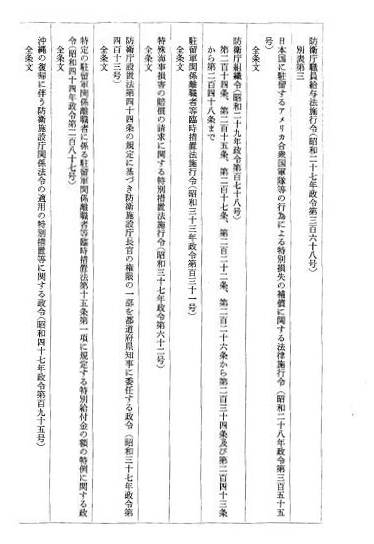 防衛庁職員給与法施行令（昭和二十七年政令第三百六十八号）
別表第三
日本国に駐留するアメリカ合衆国軍隊等の行為による特別損失の補償に関する法律施行令（昭和二十八年政令第三百五十五
号）
全条文
防衛庁組織令（昭和二十九年政令第百七十八号）
第二百十四条、第二百十五条、第二百十七条、第二百二十二条、第二百二十六条から第二百三十四条及び第二百四十三条
から第二百四十八条まで
駐留軍関係離職者等臨時措置法施行令（昭和三十三年政令第百三十一号）
全条文
特殊海事損害の賠償の請求に関する特別措置法施行令（昭和三十七年政令第六十二号）
全条文
防衛庁設置法第四十四条の規定に基づき防衛施設庁長官の権限の一部を都道府県知事に委任する政令（昭和三十七年政令第
四百十三号）
全条文
特定の駐留軍関係離職者に係る駐留軍関係離職者等臨時措置法第十五条第一項に規定する特別給付金の額の特例に関する政
令（昭和四十四年政令第二百八十七号）
全条文
沖縄の復帰に伴う防衛施設庁関係法令の適用の特別措置等に関する政令（昭和四十七年政令第百九十五号）
全条文